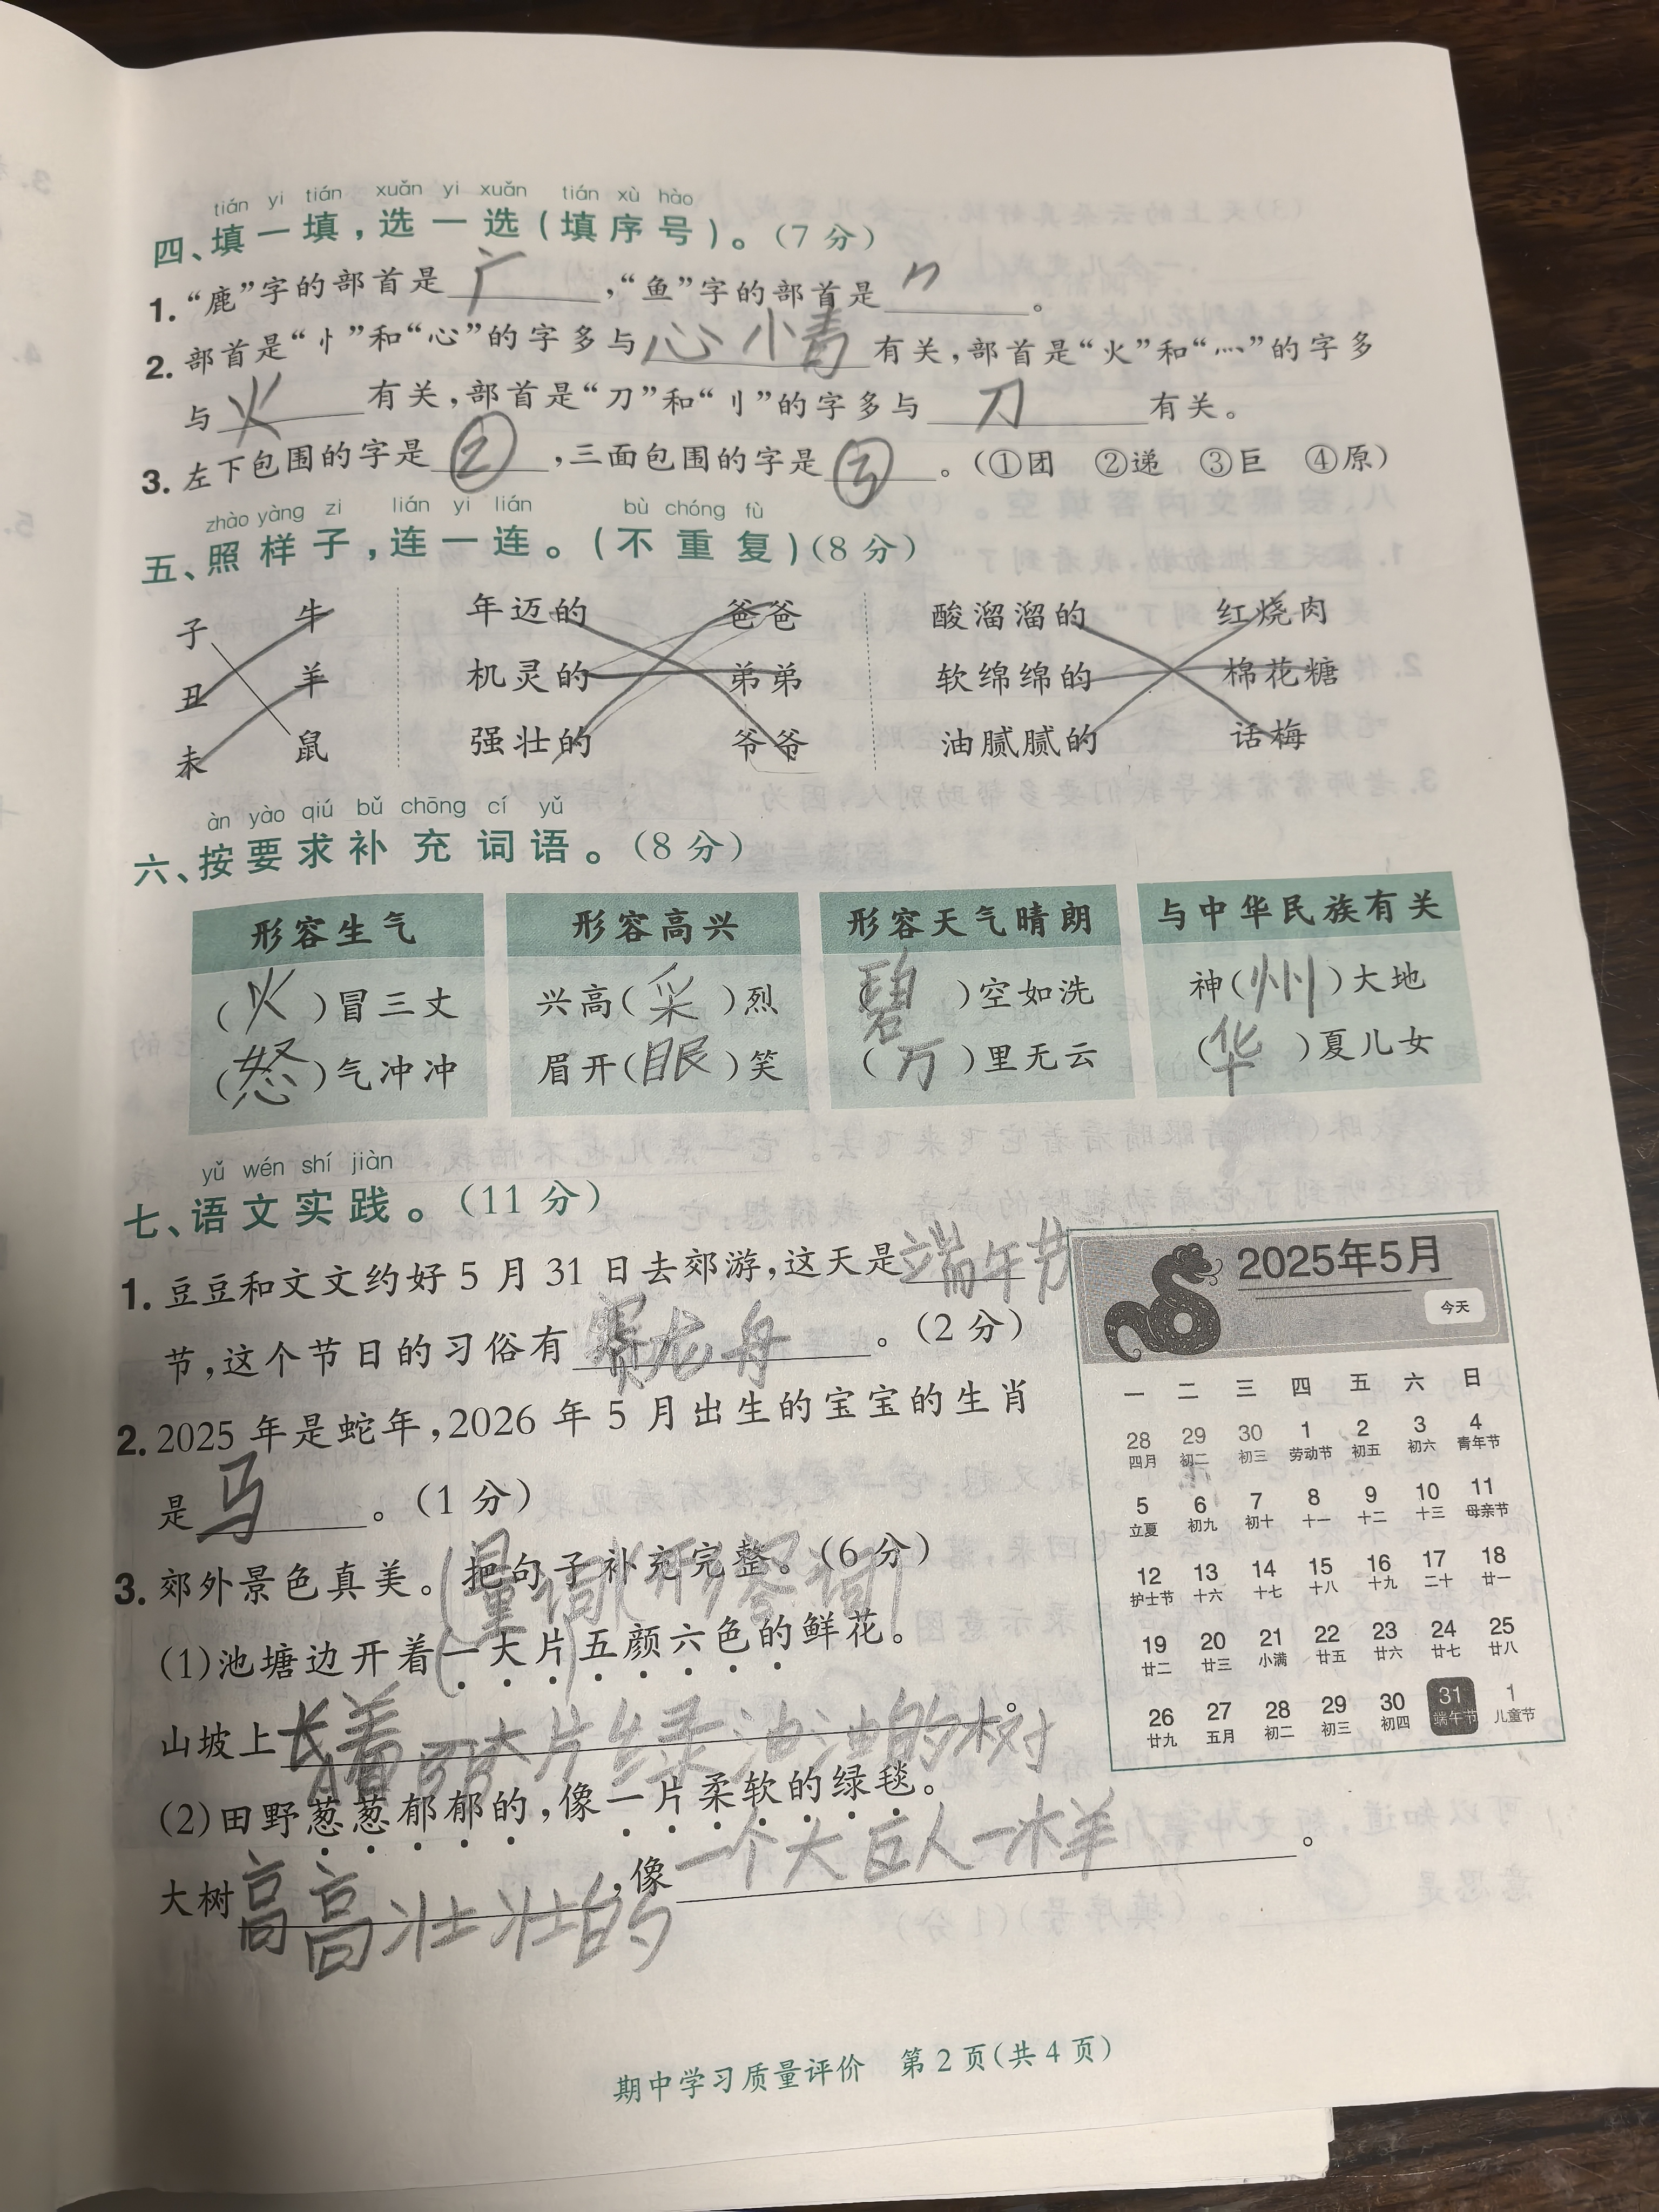 tián yi tián xuǎn yi xuǎn tián xù hào
四、填一填，选一选（填序号）。（7分）
1. “鹿”字的部首是广，“鱼”字的部首是⺈。
2. 部首是“忄”和“心”的字多与心情有关，部首是“火”和“灬”的字多
与火有关，部首是“刀”和“刂”的字多与刀有关。
3. 左下包围的字是②，三面包围的字是③。（①团 ②递 ③巨 ④原）
zhào yàng zi lián yi lián bù chóng fù
五、照样子，连一连。（不重复）（8分）
子 牛 年迈的 爸爸 酸溜溜的 红烧肉
丑 羊 机灵的 弟弟 软绵绵的 棉花糖
未 鼠 强壮的 爷爷 油腻腻的 话梅
àn yào qiú bǔ chōng cí yǔ
六、按要求补充词语。（8分）
形容生气 形容高兴 形容天气晴朗 与中华民族有关
（火）冒三丈 兴高（采）烈 （碧）空如洗 神（州）大地
（怒）气冲冲 眉开（眼）笑 （万）里无云 （华）夏儿女
yǔ wén shí jiàn
七、语文实践。（11分）
1. 豆豆和文文约好5月31日去郊游，这天是端午节
节，这个节日的习俗有赛龙舟。（2分）
2. 2025年是蛇年，2026年5月出生的宝宝的生肖
是马。（1分）
3. 郊外景色真美。把句子补充完整。（6分）
(量词)(形容词)
(1)池塘边开着一大片五颜六色的鲜花。
山坡上长着一大片绿油油的树。
(2)田野葱葱郁郁的，像一片柔软的绿毯。
大树高高壮壮的，像一个大巨人一样。
2025年5月
今天
一 二 三 四 五 六 日
28 29 30 1 2 3 4
四月 初二 初三 劳动节 初五 初六 青年节
5 6 7 8 9 10 11
立夏 初九 初十 十一 十二 十三 母亲节
12 13 14 15 16 17 18
护士节 十六 十七 十八 十九 二十 廿一
19 20 21 22 23 24 25
廿二 廿三 小满 廿五 廿六 廿七 廿八
26 27 28 29 30 31 1
廿九 五月 初二 初三 初四 端午节 儿童节
期中学习质量评价 第2页（共4页）